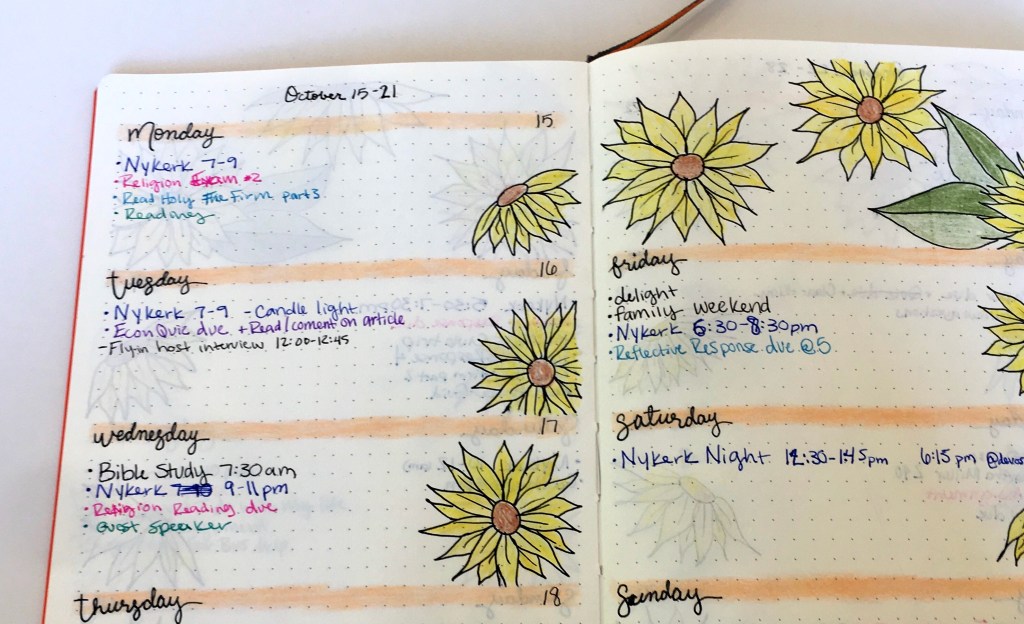 October 15-21
Monday 15
• Nykerk 7-9
• Religion Exam #2
• Read Holy the Firm part 3
• Read oney
tuesday 16
• Nykerk 7-9 - Candle light
• Econ Quic due + Read/coment on article
- Flyin host interview 12:00-12:45
wednesday 17
• Bible Study 7:30 am
• Nykerk 9-11pm
• Religion Reading due
• Guest Speaker
thursday 18
friday
• delight
• family weekend
• Nykerk 6:30-8:30pm
• Reflective Response due @5
saturday
• Nykerk Night 12:30-1:45pm 6:15 pm
Sunday